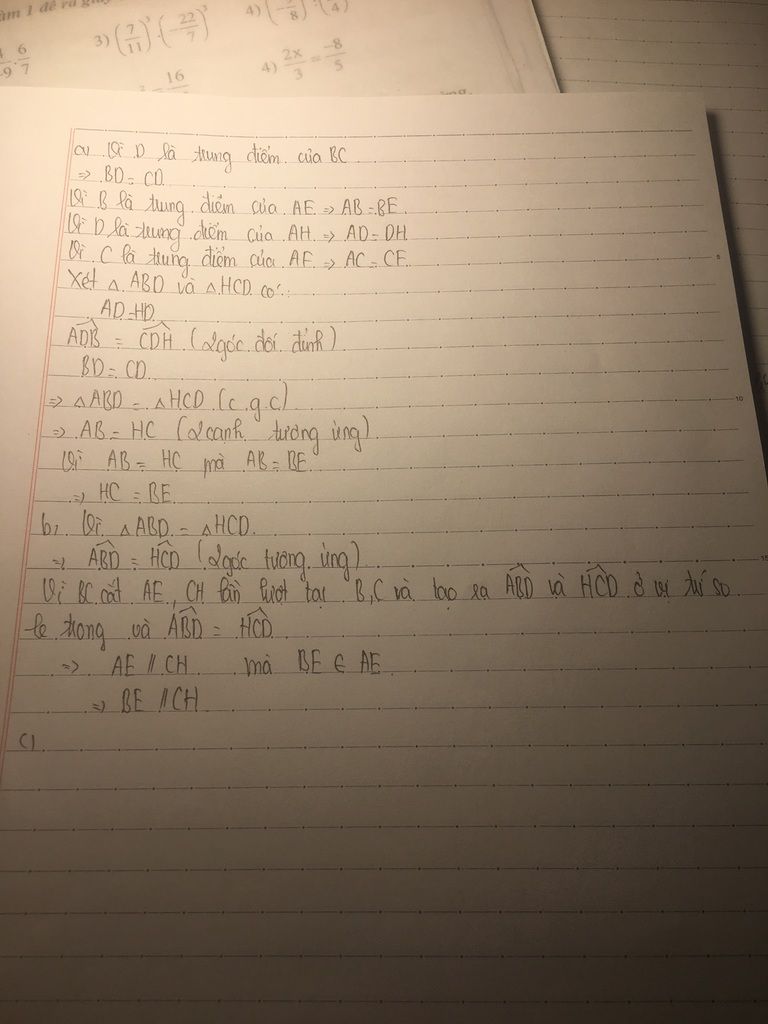 àm 1 đề ra giấy
6/7
3) (7/11)³.(-22/7)³
4)
16
4) 2x/3 = -8/5
a) Vì D là trung điểm của BC
=> BD = CD
Vì B là trung điểm của AE => AB = BE
Vì D là trung điểm của AH => AD = DH
Vì C là trung điểm của AF => AC = CF
Xét △ABD và △HCD có:
AD = HD
ADB = CDH (2 góc đối đỉnh)
BD = CD
=> △ABD = △HCD (c.g.c)
=> AB = HC (2 cạnh tương ứng)
Vì AB = HC mà AB = BE
=> HC = BE
b, Vì △ABD = △HCD
=> ABD = HCD (2 góc tương ứng)
Vì BC cắt AE, CH lần lượt tại B, C và tạo ra ABD và HCD ở vị trí so
le trong và ABD = HCD
=> AE // CH mà BE ∈ AE
=> BE // CH
c)
5
10
15